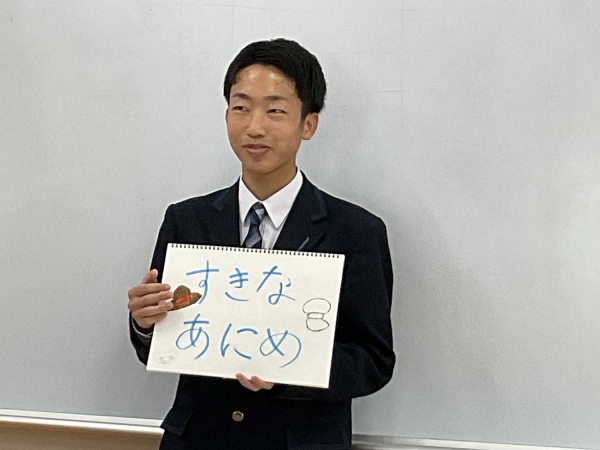 すきな
あにめ